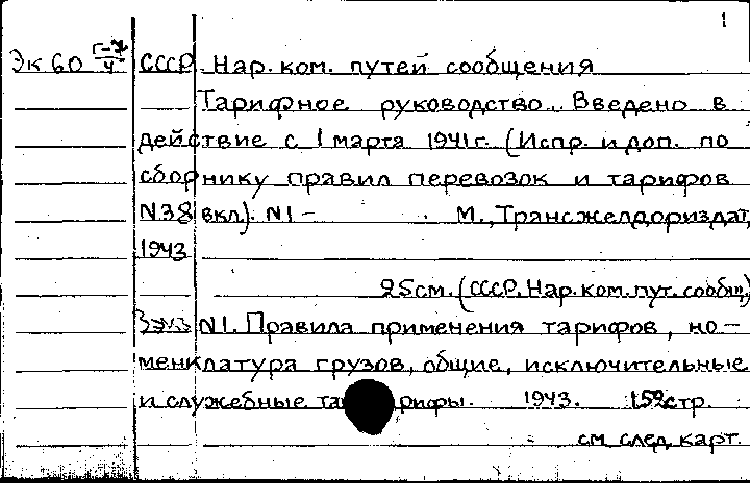 1
Эк 60 Г-7/4 СССР. Нар. ком. путей сообщения
Тарифное руководство. Введено в
действие с 1 марта 1941г. (Испр. и доп. по
сборнику правил перевозок и тарифов
N38 вкл). N1 – М., Трансжелдориздат,
1943
25см. (СССР. Нар. ком. пут. сообщ.)
3 экз N1. Правила применения тарифов, но-
менклатура грузов, общие, исключительные
и служебные тарифы. 1943. 152стр.
см. след. карт.